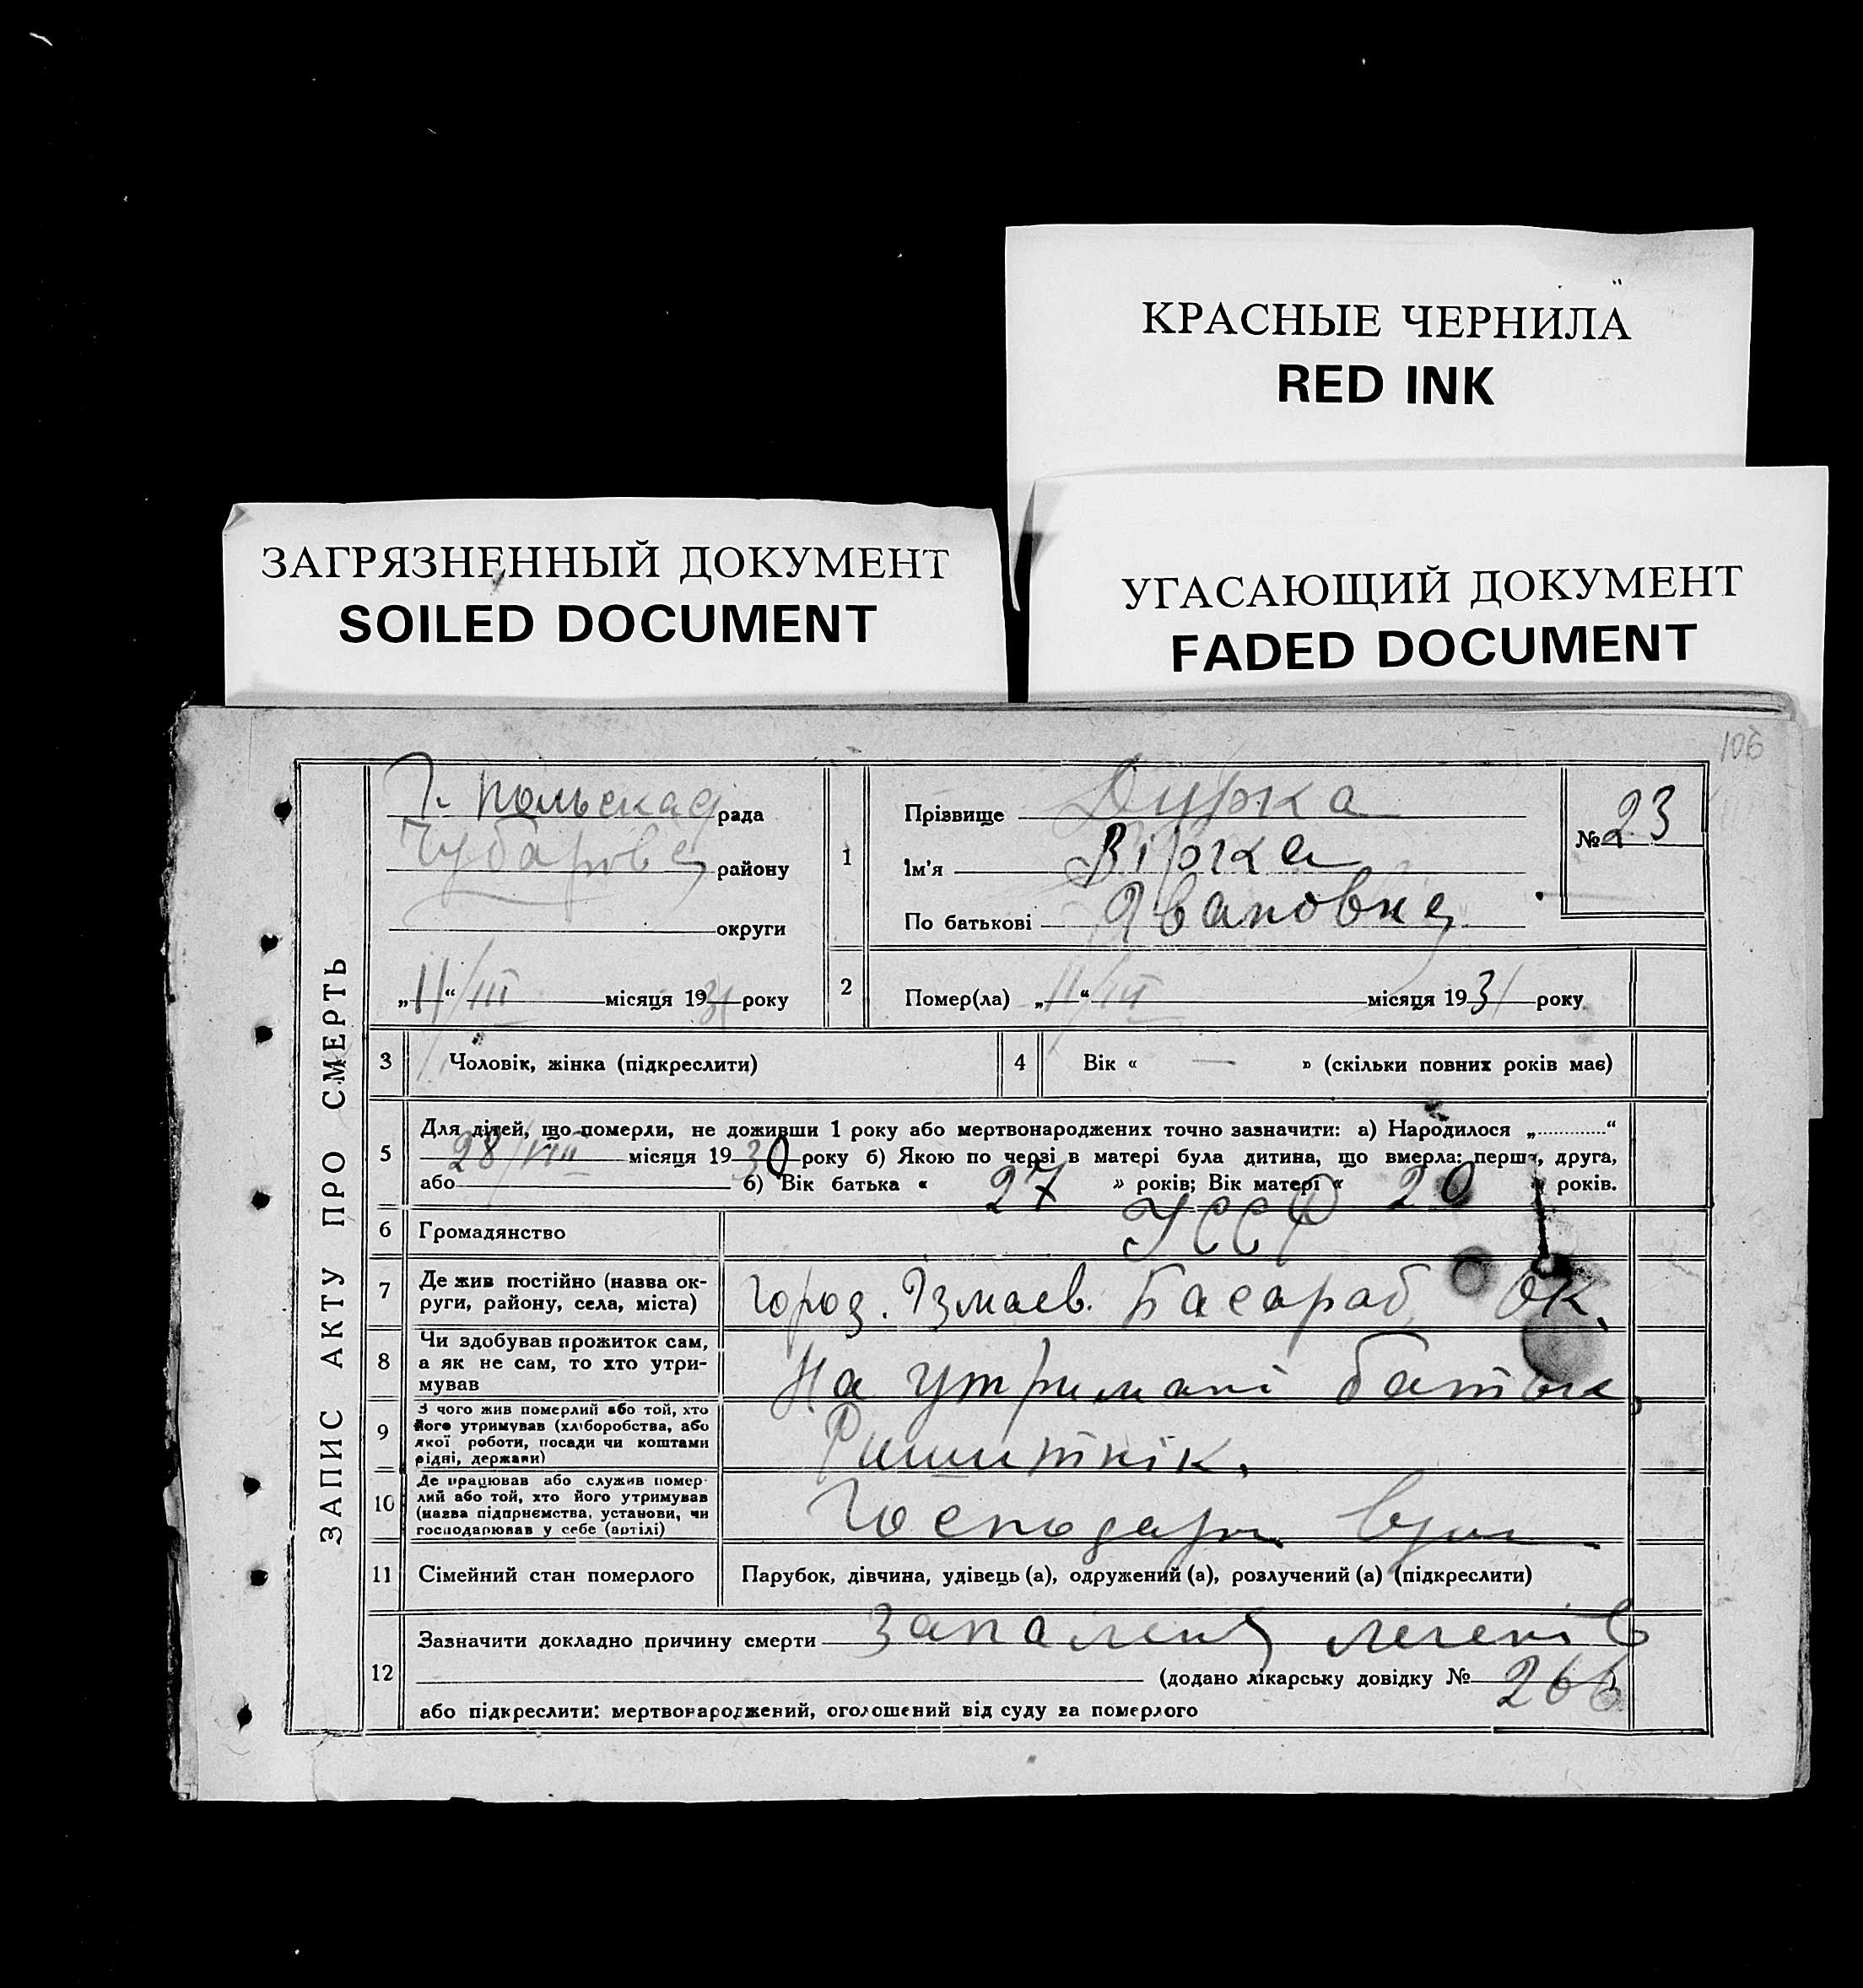 КРАСНЫЕ ЧЕРНИЛА
RED INK
ЗАГРЯЗНЕННЫЙ ДОКУМЕНТ
SOILED DOCUMENT
УГАСАЮЩИЙ ДОКУМЕНТ
FADED DOCUMENT
106
ЗАПИС АКТУ ПРО СМЕРТЬ
Г. польская рада
района
округи
„11“ III місяця 1931 року
1
Прізвище Дурка
Ім'я Вірка
По батькові Явановна
№ 23
2
Помер(ла) „11“ III місяця 1931 року
3
Чоловік, жінка (підкреслити)
4
Вік « — » (скільки повних років має)
5
Для дітей, що померли, не доживши 1 року або мертвонароджених точно зазначити: а) Народилося „............“
28/VIII місяця 1930 року б) Якою по черзі в матері була дитина, що вмерла: перша, друга,
або б) Вік батька « 27 » років; Вік матері « 20 » років.
6
Громадянство
УССР
7
Де жив постійно (назва ок-
руги, району, села, міста)
Город. Ізмаев. Басараб. ок.
8
Чи здобував прожиток сам,
а як не сам, то хто утри-
мував
На утримані батька
9
З чого жив померлий або той, хто
його утримував (хліборобства, або
якої роботи, посади чи коштами
рідні, держави)
10
Де працював або служив помер-
лий або той, хто його утримував
(назва підприємства, установи, чи
господарював у себе (артілі)
Господар
11
Сімейний стан померлого
Парубок, дівчина, удівець (а), одружений (а), розлучений (а) (підкреслити)
12
Зазначити докладно причину смерти Запаленя легенів
(додано лікарську довідку № 266
або підкреслити: мертвонароджений, оголошений від суду за померлого